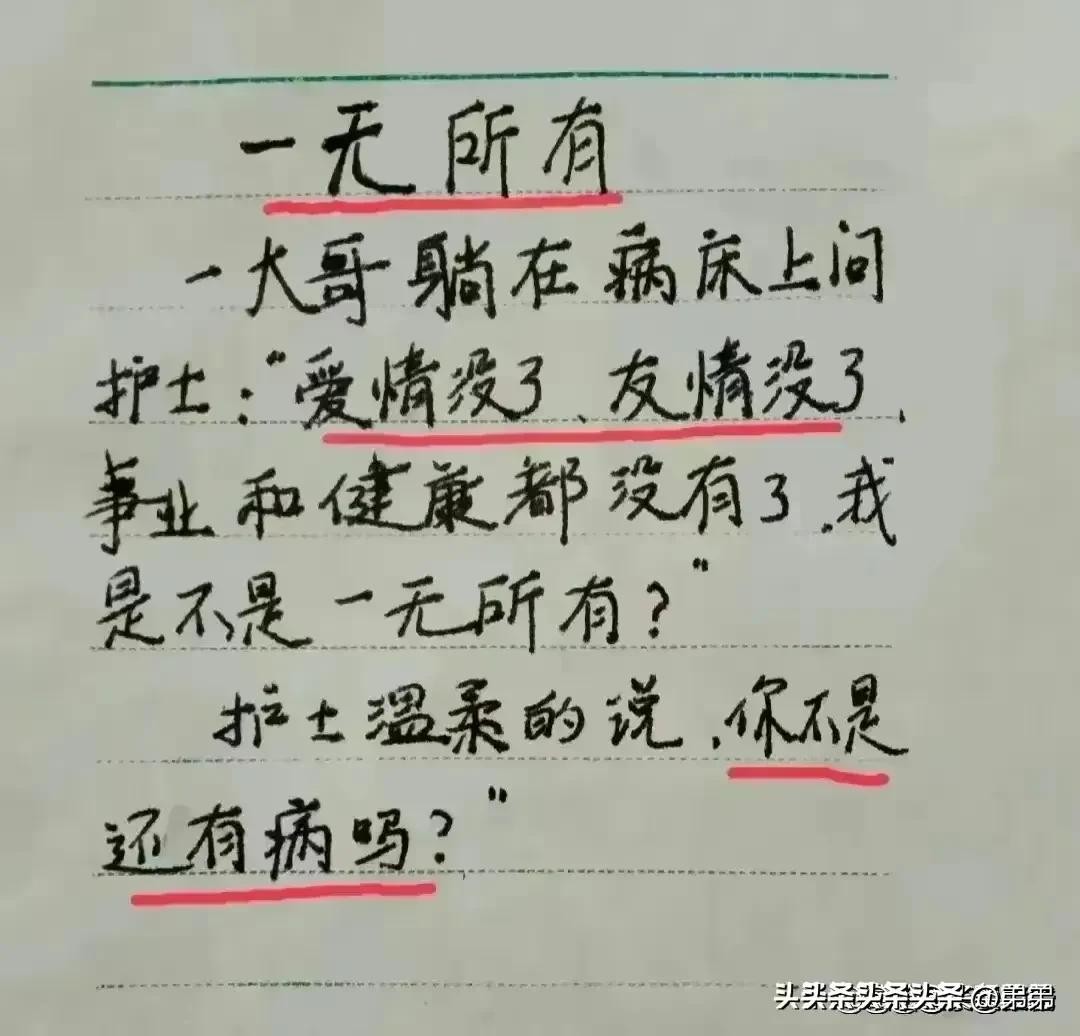 一无所有
一大哥躺在病床上问
护士:“爱情没了、友情没了、
事业和健康都没有了,我
是不是一无所有?”
护士温柔的说,你不是
还有病吗?”